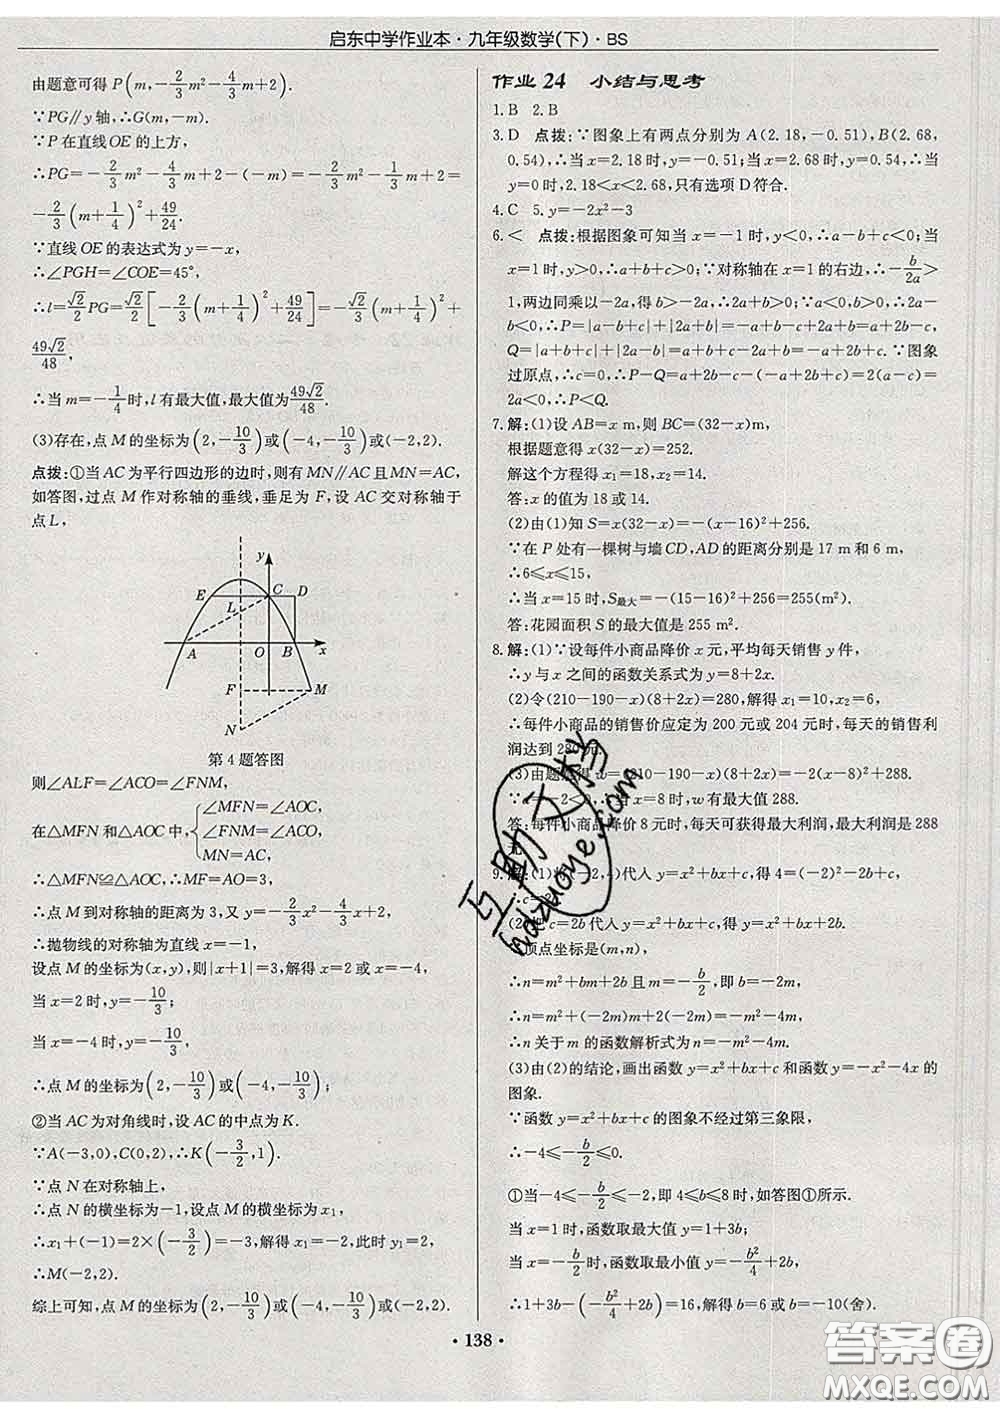 启东中学作业本·九年级数学(下)·BS
由题意可得 P(m,-2/3m²-4/3m+2).
∵PG∥y 轴,∴G(m,-m).
∵P 在直线 OE 的上方,
∴PG=-2/3m²-4/3m+2-(-m)=-2/3m²-1/3m+2=
-2/3(m+1/4)²+49/24.
∵直线 OE 的表达式为 y=-x,
∴∠PGH=∠COE=45°,
∴l=√2/2PG=√2/2[-2/3(m+1/4)²+49/24]=-√2/3(m+1/4)²+
49√2/48,
∴当 m=-1/4时,l 有最大值,最大值为49√2/48.
(3)存在,点 M 的坐标为(2,-10/3)或(-4,-10/3)或(-2,2).
点拨:①当 AC 为平行四边形的边时,则有 MN∥AC 且 MN=AC,
如答图,过点 M 作对称轴的垂线,垂足为 F,设 AC 交对称轴于
点 L,
y
E C D
L
A O B x
F M
N
第 4 题答图
则∠ALF=∠ACO=∠FNM,
在△MFN 和△AOC 中,{∠MFN=∠AOC,
∠FNM=∠ACO,
MN=AC,
∴△MFN≌△AOC,∴MF=AO=3,
∴点 M 到对称轴的距离为 3,又 y=-2/3x²-4/3x+2,
∴抛物线的对称轴为直线 x=-1,
设点 M 的坐标为(x,y),则|x+1|=3,解得 x=2或 x=-4,
当 x=2 时,y=-10/3;
当 x=-4 时,y=-10/3,
∴点 M 的坐标为(2,-10/3)或(-4,-10/3);
②当 AC 为对角线时,设 AC 的中点为 K.
∵A(-3,0),C(0,2),∴K(-3/2,1).
∵点 N 在对称轴上,
∴点 N 的横坐标为-1,设点 M 的横坐标为 x₁,
∴x₁+(-1)=2×(-3/2)=-3,解得 x₁=-2,此时 y₁=2,
∴M(-2,2).
综上可知,点 M 的坐标为(2,-10/3)或(-4,-10/3)或(-2,2).
作业 24 小结与思考
1.B 2.B
3.D 点拨:∵图象上有两点分别为 A(2.18,-0.51),B(2.68,
0.54),∴当 x=2.18 时,y=-0.51;当 x=2.68 时,y=0.54,∴当
y=0 时,2.18<x<2.68,只有选项 D 符合.
4.C 5.y=-2x²-3
6.< 点拨:根据图象可知当 x=-1 时,y<0,∴a-b+c<0;当
x=1 时,y>0,∴a+b+c>0;∵对称轴在 x=1 的右边,∴-b/2a>
1,两边同乘以-2a,得 b>-2a,∴2a+b>0;∵a<0,b>0,∴2a-
b<0,∴P=|a-b+c|+|2a+b|=-a+b-c+2a+b=a+2b-c,
Q=|a+b+c|+|2a-b|=a+b+c-2a+b=-a+2b+c.∵图象
过原点,∴c=0,∴P-Q=a+2b-c-(-a+2b+c)=2(a-c)=
2a<0,∴P<Q.
7.解:(1)设 AB=x m,则 BC=(32-x)m,
根据题意得 x(32-x)=252.
解这个方程得 x₁=18,x₂=14.
答:x 的值为 18 或 14.
(2)由(1)知 S=x(32-x)=-(x-16)²+256.
∵在 P 处有一棵树与墙 CD,AD 的距离分别是 17 m 和 6 m,
∴6≤x≤15,
∴当 x=15 时,S最大=-(15-16)²+256=255(m²).
答:花园面积 S 的最大值是 255 m².
8.解:(1)∵设每件小商品降价 x 元,平均每天销售 y 件,
∴y 与 x 之间的函数关系式为 y=8+2x.
(2)令(210-190-x)(8+2x)=280,解得 x₁=10,x₂=6,
∴每件小商品的销售价应定为 200 元或 204 元时,每天的销售利
润达到 280元.
(3)由题意得 w=(210-190-x)(8+2x)=-2(x-8)²+288.
∵a=-2<0,∴当 x=8 时,w 有最大值 288.
答:每件小商品降价 8 元时,每天可获得最大利润,最大利润是 288
元.
9.解:(1)将(-2,4)代入 y=x²+bx+c,得 4=(-2)²-2b+c,
∴c=2b.
(2)把 c=2b 代入 y=x²+bx+c,得 y=x²+bx+2b,
∵顶点坐标是(m,n),
∴n=m²+bm+2b 且 m=-b/2,即 b=-2m,
∴n=m²+(-2m)m+2(-2m)=-m²-4m,
∴n 关于 m 的函数解析式为 n=-m²-4m.
(3)由(2)的结论,画出函数 y=x²+bx+c 和函数 y=-x²-4x 的
图象.
∵函数 y=x²+bx+c 的图象不经过第三象限,
∴-4≤-b/2≤0.
①当-4≤-b/2≤-2,即 4≤b≤8 时,如答图①所示.
当 x=1 时,函数取最大值 y=1+3b;
当 x=-b/2时,函数取最小值 y=-b²/4+2b,
∴1+3b-(-b²/4+2b)=16,解得 b=6 或 b=-10(舍).
·138·
互助文档
hdzuoye.com
答案圈
MXQE.COM